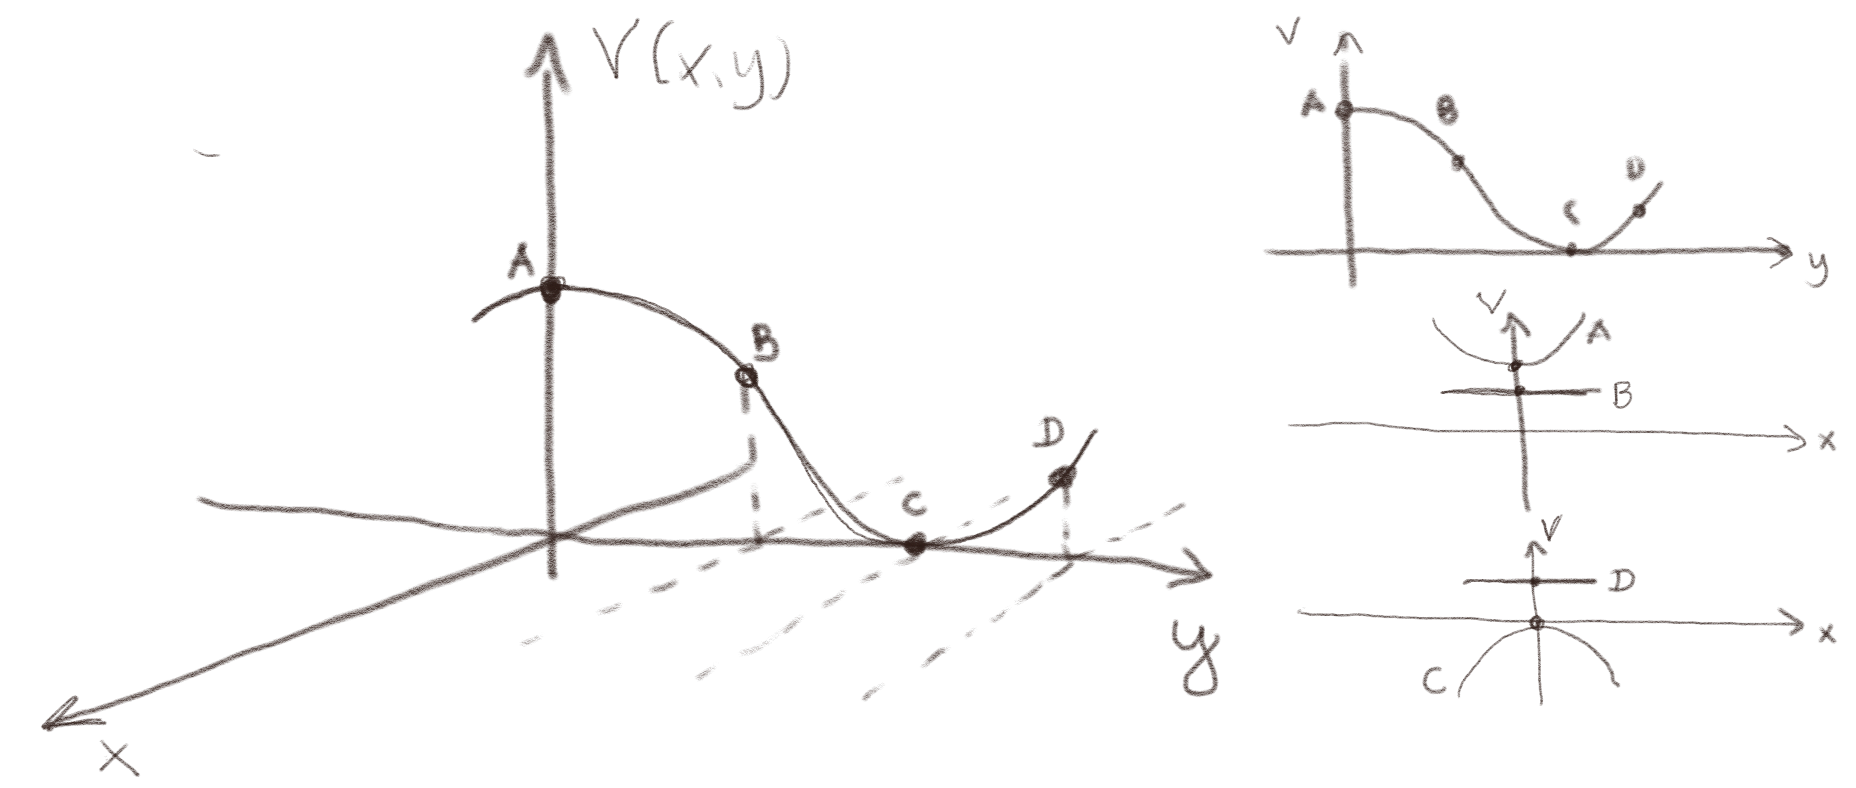 V(x,y)
A
B
C
D
y
x
V
A
B
C
D
y
V
A
B
x
V
D
x
C